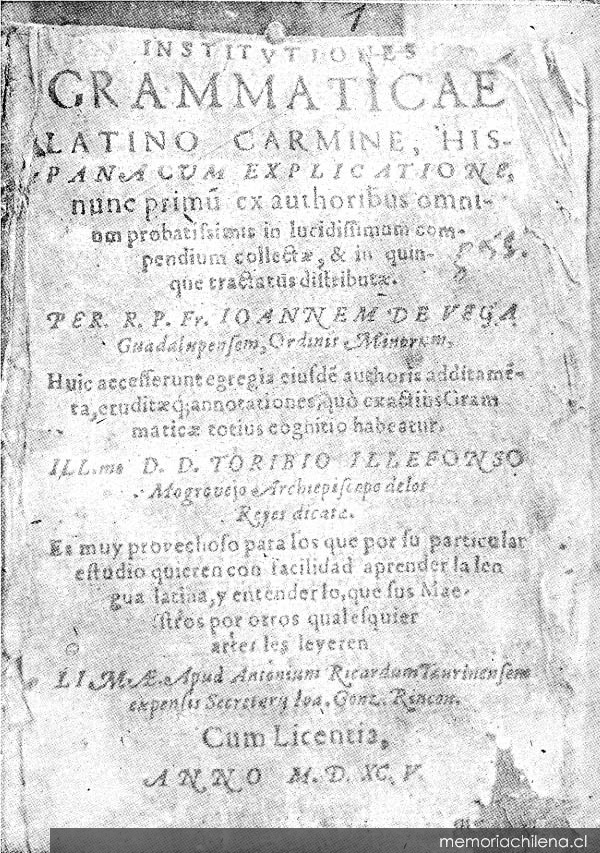 1
INSTITVTIONES
GRAMMATICAE
LATINO CARMINE, HIS-
PANA CUM EXPLICATIONE,
nunc primũ ex authoribus omni-
um probatissimis in lucidissimum com-
pendium collectæ, & in quin-
que tractatus distributæ.
PER. R. P. Fr. IOANNEM DE VEGA
Guadalupensem, Ordinis Minorum,
Huic accesserunt egregia eiusdẽ authoris additamẽ-
ta, eruditæq́; annotationes, quò exactius Gram
maticæ totius cognitio habeatur.
ILL.mo D. D. TORIBIO ILLEFONSO
Mogrovejo Archiepiscopo de los
Reyes dicata.
Es muy provechoso para los que por su particular
estudio quieren con facilidad aprender la len
gua latina, y entenderlo, que sus Mae-
stros por otros qualesquier
artes les leyeren
LIMÆ. Apud Antonium Ricardum Taurinensem
expensis Secretarij Ioa. Gonz. Rincon.
Cum Licentia,
ANNO M. D. XC. V
memoriachilena.cl